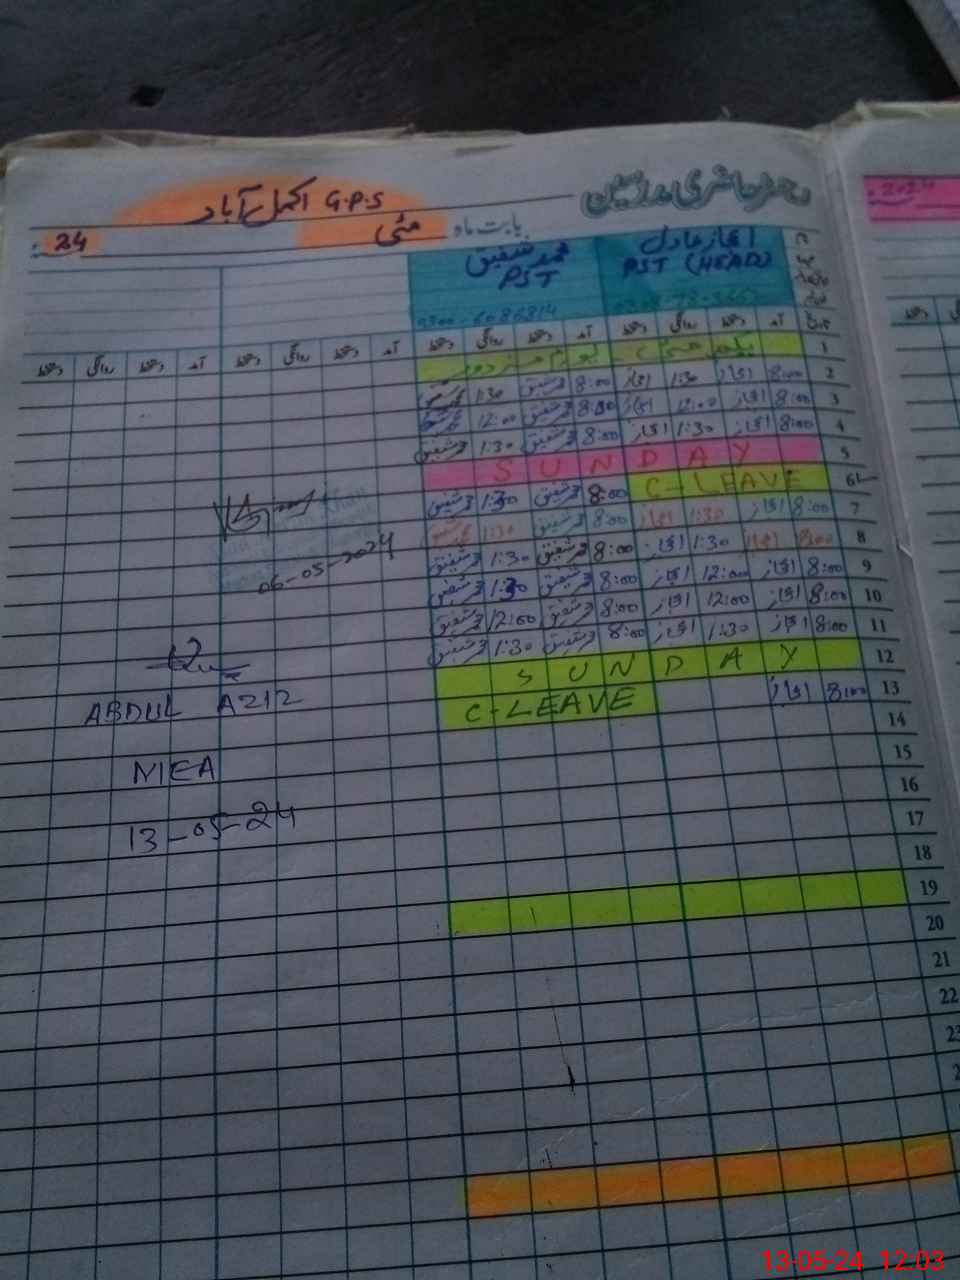 رجسٹر حاضری مدرسین
G.P.S اکمل آباد
بابت ماہ مئی 24
اعجاز عادل محمد شفیق
PST (HEAD) PST
0300-6086814
آمد دستخط روانگی دستخط آمد دستخط روانگی دستخط آمد دستخط روانگی دستخط آمد دستخط روانگی دستخط
1 یکم مئی - یوم مزدور
2 8:00 اعجاز 1:30 اعجاز 8:00 محمد شفیق 1:30 محمد شفیق
3 8:00 اعجاز 12:00 اعجاز 8:00 محمد شفیق 12:00 محمد شفیق
4 8:00 اعجاز 1:30 اعجاز 8:00 محمد شفیق 1:30 محمد شفیق
5 SUNDAY
6 C-LEAVE 8:00 محمد شفیق 1:30 محمد شفیق
7 8:00 اعجاز 1:30 اعجاز 8:00 محمد شفیق 1:30 محمد شفیق
8 8:00 اعجاز 1:30 اعجاز 8:00 محمد شفیق 1:30 محمد شفیق
9 8:00 اعجاز 12:00 اعجاز 8:00 محمد شفیق 1:30 محمد شفیق
10 8:00 اعجاز 12:00 اعجاز 8:00 محمد شفیق 12:00 محمد شفیق
11 8:00 اعجاز 1:30 اعجاز 8:00 محمد شفیق 1:30 محمد شفیق
12 SUNDAY
13 8:00 اعجاز C-LEAVE
14
15
16
17
18
19
20
21
22
23
06-05-2024
ABDUL AZIZ
MEA
13-05-24
2024
13-05-24 12:03